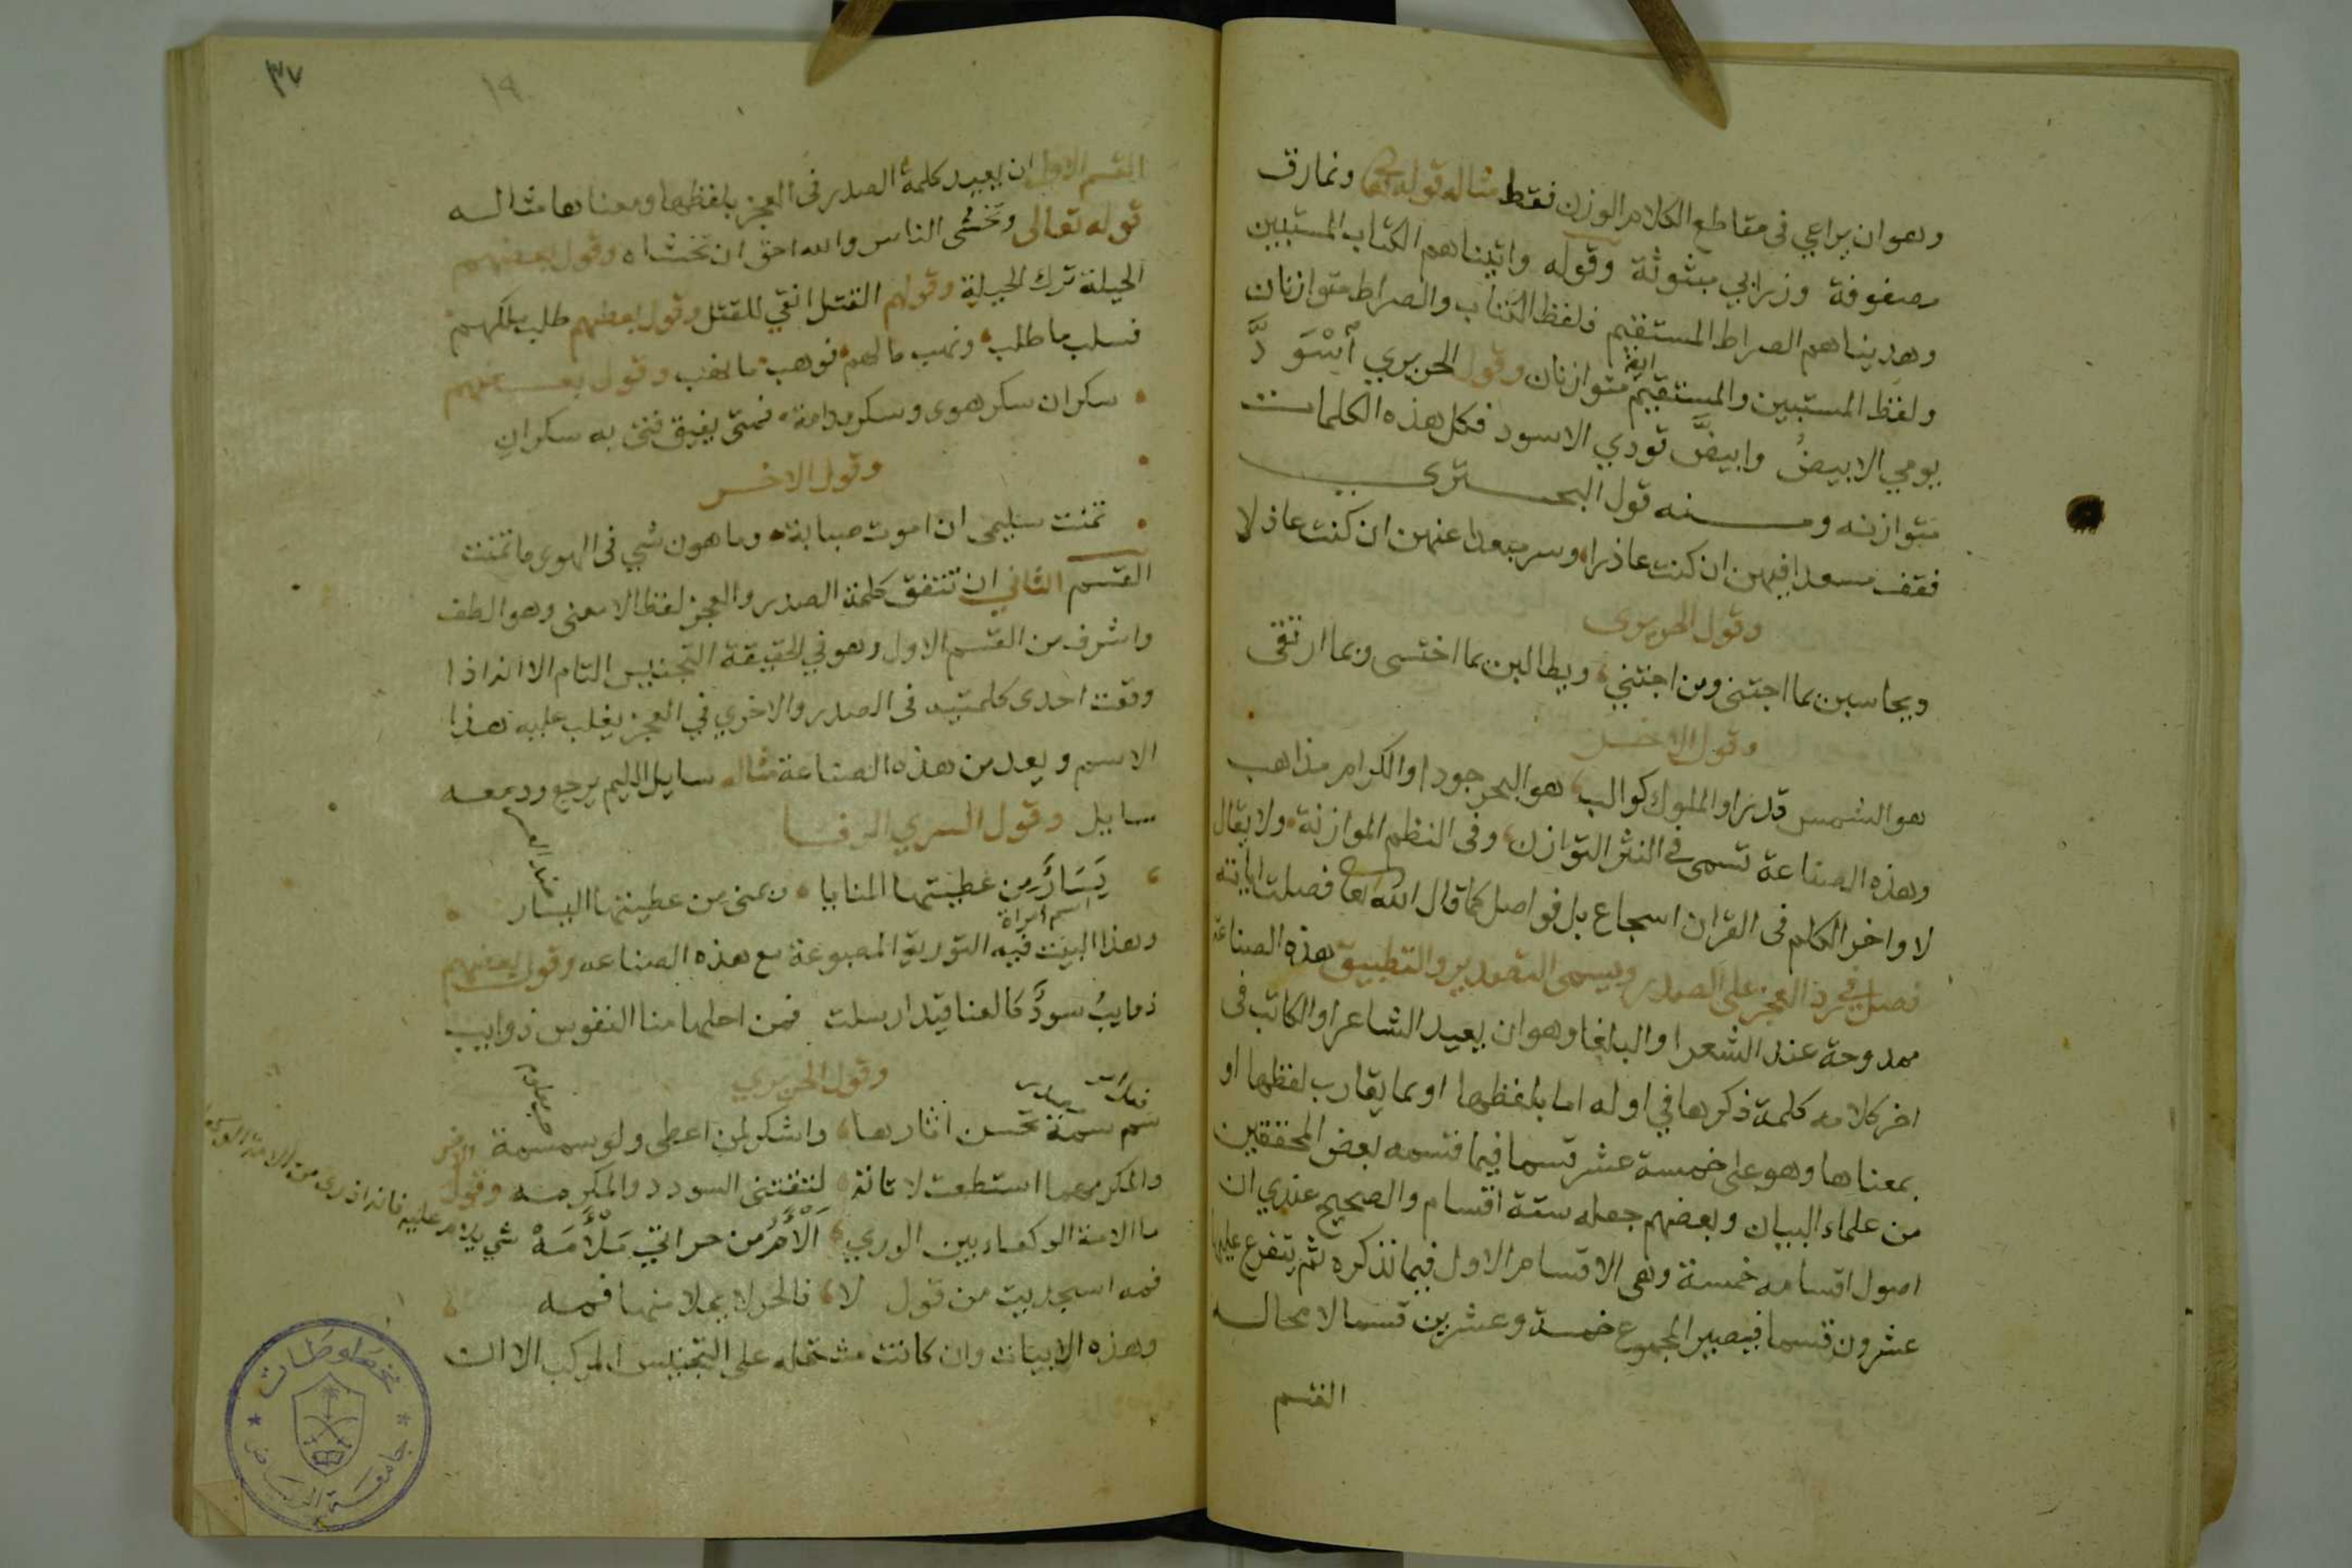 وهو ان يراعي في مقاطع الكلام الوزن فقط مثاله قوله تعالى ونمارق
مصفوفة وزرابي مبثوثة وقوله واتيناهم الكتاب المستبين
وهديناهم الصراط المستقيم فلفظ الكتاب والصراط متوازنان
ولفظ المستبين والمستقيم ايضا متوازنان وقول الحريري اسْوَدَّ
يومي الابيضُ وابيضَّ فودي الاسود فكل هذه الكلمات
متوازنه ومنه قول البحتري
فقف مسعدا فيهن ان كنت عاذرا وسر مبعدا عنهن ان كنت عاذلا
وقول الحريري
ويحاسبن بما اجتنى ومن اجتني ويطالبن بما اختسى وبما ارتقى
وقول الاخر
هو الشمس قدرا والملوك كواكب هو البحر جودا والكرام مذاهب
وهذه الصناعة تسمى في النثر التوازن وفى النظم الموازنة ولا يقال
لاواخر الكلم فى القران اسجاع بل فواصل كما قال الله تعا فصلت اياته
فصل في رد العجز على الصدر ويسمى التصدير والتطبيق هذه الصناعة
ممدوحة عند الشعرا والبلغا وهو ان يعيد الشاعر او الكاتب فى
اخر كلامه كلمة ذكرها في اوله اما بلفظها او بما يقارب لفظها او
بمعناها وهو على خمسة عشر قسما فيما قسمه بعض المحققين
من علماء البيان وبعضهم جعله ستة اقسام والصحيح عندي ان
اصول اقسامه خمسة وهى الاقسام الاول فيما نذكره ثم يتفرع عليها
عشرون قسما فيصير المجموع خمسة وعشرين قسما لا محاله
القسم
٣٧
١٩
القسم الاول ان يعيد كلمة الصدر فى العجز بلفظها ومعناها مثاله
قوله تعالى وتخشى الناس والله احق ان تخشاه وقول بعضهم
الحيلة ترك الحيلة وقولهم القتل انقي للقتل وقول بعضهم طلب ملكهم
فسلب ما طلب ونهب مالهم فوهب ما نهب وقول بعضهم
سكران سكر هوى وسكر مدامة فمتى يفيق فتى به سكران
وقول الاخر
تمنت سليمى ان اموت صبابة وما هون شي فى الهوى ما تمنت
القسم الثاني ان تتفق كلمة الصدر والعجز لفظا لا معنى وهو الطف
واشرف من القسم الاول وهو في الحقيقة التجنيس التام الا انه اذا
وقعت احدى كلمتيه فى الصدر والاخرى في العجز يغلب عليه هذا
الاسم ويعد من هذه الصناعة مثاله سايل اللئيم يرجع ودمعه
سايل وقول السري الرفا
يَسَارٌ من عطيتها المنايا ويمنى من عطيتها اليسار
اسم امراة
وهذا البيت فيه التورية المصبوغة مع هذه الصناعه وقول بعضهم
ذوايبُ سودٌ كالعناقيد ارسلت فمن اجلها منا النفوس ذوايب
وقول الحريري
سم سمة تحسن اثارها واشكر لمن اعطى ولو سمسمة
والمكر مهما استطعت لا تاته لتقتني السودد والمكرمه وقول
ما الامة الوكعاء بين الورى الأم من حر اتي مَلْأَمَهْ شي يلام عليه
فمه اسجديت من قول لا فالحر لا يملا منها فمه
وهذه الابيات وان كانت مشتمله على التجنيس المركب الا ان
مخطوطات
جامعة الرياض